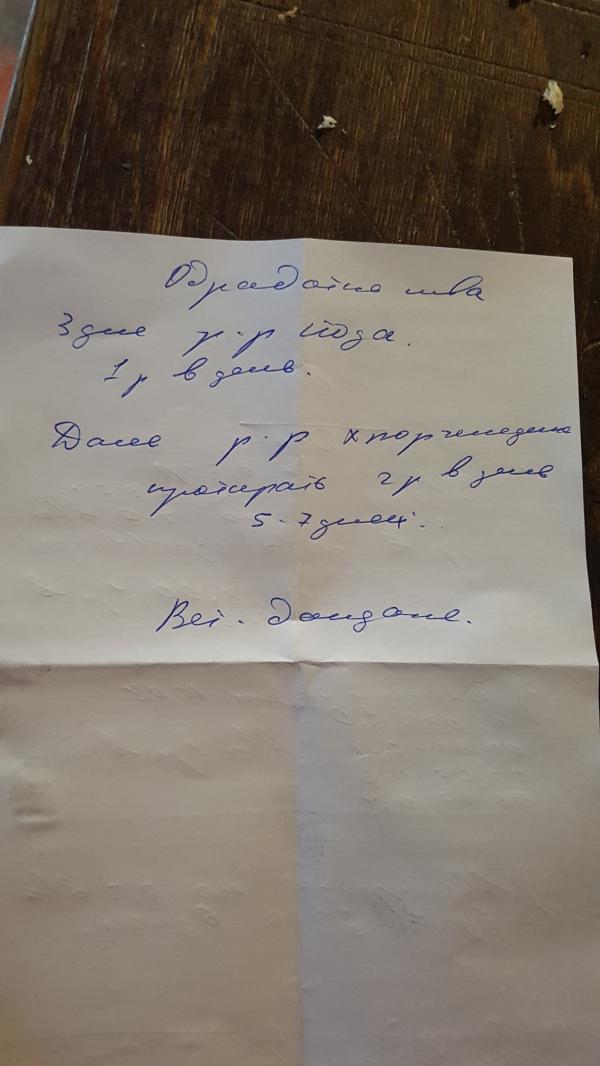 Обработка шва
3 дня р-р йода.
1 р в день.
Далее р-р хлоргексидина
протирать 2 р в день
5-7 дней.
Вет.